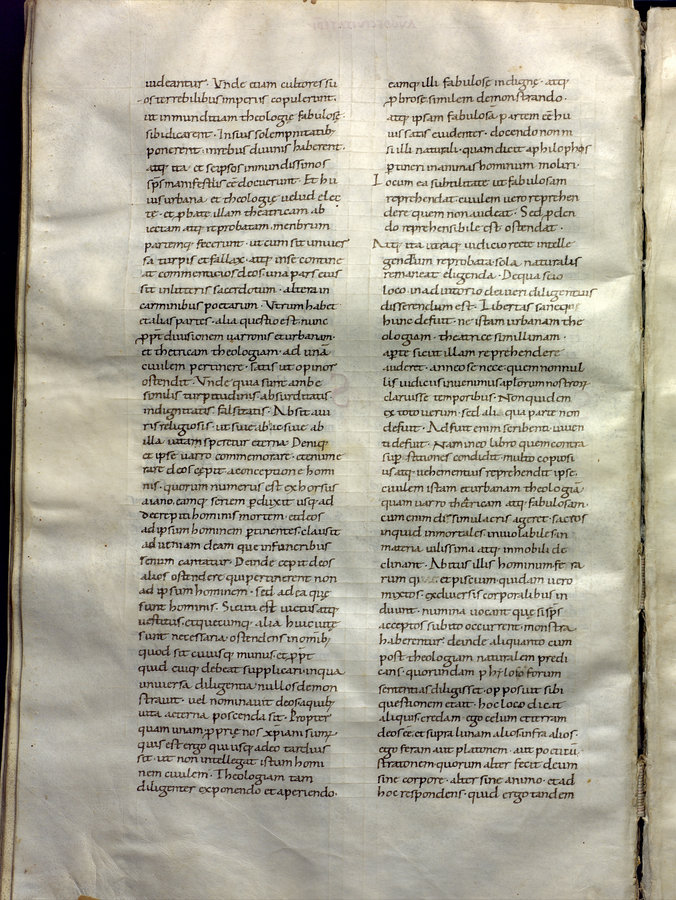 uideantur. Vnde etiam cultores su
os terrebilibus imperiis copulerunt.
ut inmunditiam theologię fabulosę
sibi dicarent. In suis solempnitatib;
ponerent. in rebus diuinis haberent.
atq; ita et se ipsos inmundissimos
sp̄s manifestius eē docuerunt. Et hu
ius urbanę et theologię uelud elec
tę. et ꝓbatę illam theatricam ab
iectam atq; reprobatam menbrum
partemq; fecerunt. ut cum sit uniuer
sa turpis et fallax. atq; in se contine
at commenticios deos. una pars eius
sit in litteris sacerdotum. altera in
carminibus poetarum. Vtrum habet
et alias partes. alia questio est nunc
ꝓpt̄ diuisionem uarronis et urbanam
et theatricam theologiam. ad unā
ciuilem pertinere. satis ut opinor
ostendit. Vnde quia sunt ambe
similis turpitudinis absurditatis.
indignitatis. falsitatis. Absit a ui
ris religiosis. ut siue ab hac siue ab
illa uitam speretur eterna. Deniq;
et ipse uarro commemorare. et enume
rare deos coepit a conceptione homi
nis. quorum numerus est exhorsus
a iano. eamq; seriem ꝓduxit usq; ad
decrepiti hominis mortem. et deos
ad ipsum hominem ꝑtinentes clausit
ad neniam deam que in funeribus
senum cantatur. Deinde cepit deos
alios ostendere qui pertinerent non
ad ipsum hominem. sed ad ea quę
sunt hominis. Sicuti est uictus atq;
uestitus. et quecumq; alia huic uitę
sunt necessaria. ostendens in omib;
quod sit cuiusq; munus. et ꝓpt̄
quid cuiq; debeat supplicari. in qua
uniuersa diligentia nullos demon
strauit. uel nominauit deos a quib;
uita aeterna poscenda sit. Propter
quam unam ꝓprię nos xp̄iani sum;
quis est ergo qui usq; adeo tardius
sit. ut non intellegat istum homi
nem ciuilem. Theologiam tam
diligenter exponendo et aperiendo.
eamq; illi fabulosę indignę. atq;
ꝓbrosę similem demonstrando.
atq; ipsam fabulosa partem eē hu
ius satis euidenter. docendo non n
si illi naturali. quam dicit a philophos
ꝑtineri in animas hominum moliri.
Locum ea subtilitate ut fabulosam
reprehendat. ciuilem uero reprehen
dere quem non audeat. Sed ꝓden
do reprehensibilē est ostendat.
Atq; ita utraq; iudicio recte intelle
gendum reprobata. sola naturalis
remaneat eligenda. De qua suo
loco in adiutorio dei ueri diligentius
disserendum est. Libertas sane
hunc defuit. ne istam urbanam the
ologiam. theatricę simillimam.
apte sicut illam reprehendere
auderet. anneo senece. quem nonnul
lis iudiciis inuenimus aplōrum nostrorū
claruisse temporibus. Non quidem
ex toto uerum. sed aliqua parte non
defuit. Adfuit enim scribenti. uiuen
ti defuit. Nam in eo libro quem contra
suꝑstitiones condidit. multo copiosi
us. atq; uehementius reprehendit ipse.
ciuilem istam et urbanam theologiā.
quam uarro theatricam atq; fabulosam.
cum enim de simulacris ageret. sacros
inquid inmortales inuiolabiles in
materia uilissima atq; inmobili de
clinant. Abitus illis hominum fera
rum et piscium. quidam uero
mixtos. ex diuersis corporalibus in
duunt. numina uocant que si sp̄s
acceptos subito occurrent. monstra
haberentur. deinde aliquanto cum
post theologiam naturalem predi
cans. quorundam philosoforum
sententias diligisset. opposuit sibi
questionem et ait. hoc loco dicat
aliquis. credam ego celum et terram
deos eē. et supra lunam alios infra alios.
ego feram aut platonem. aut pociticū
stratonem. quorum alter fecit deum
sine corpore. alter sine animo. et ad
hoc respondens. quid ergo tandem